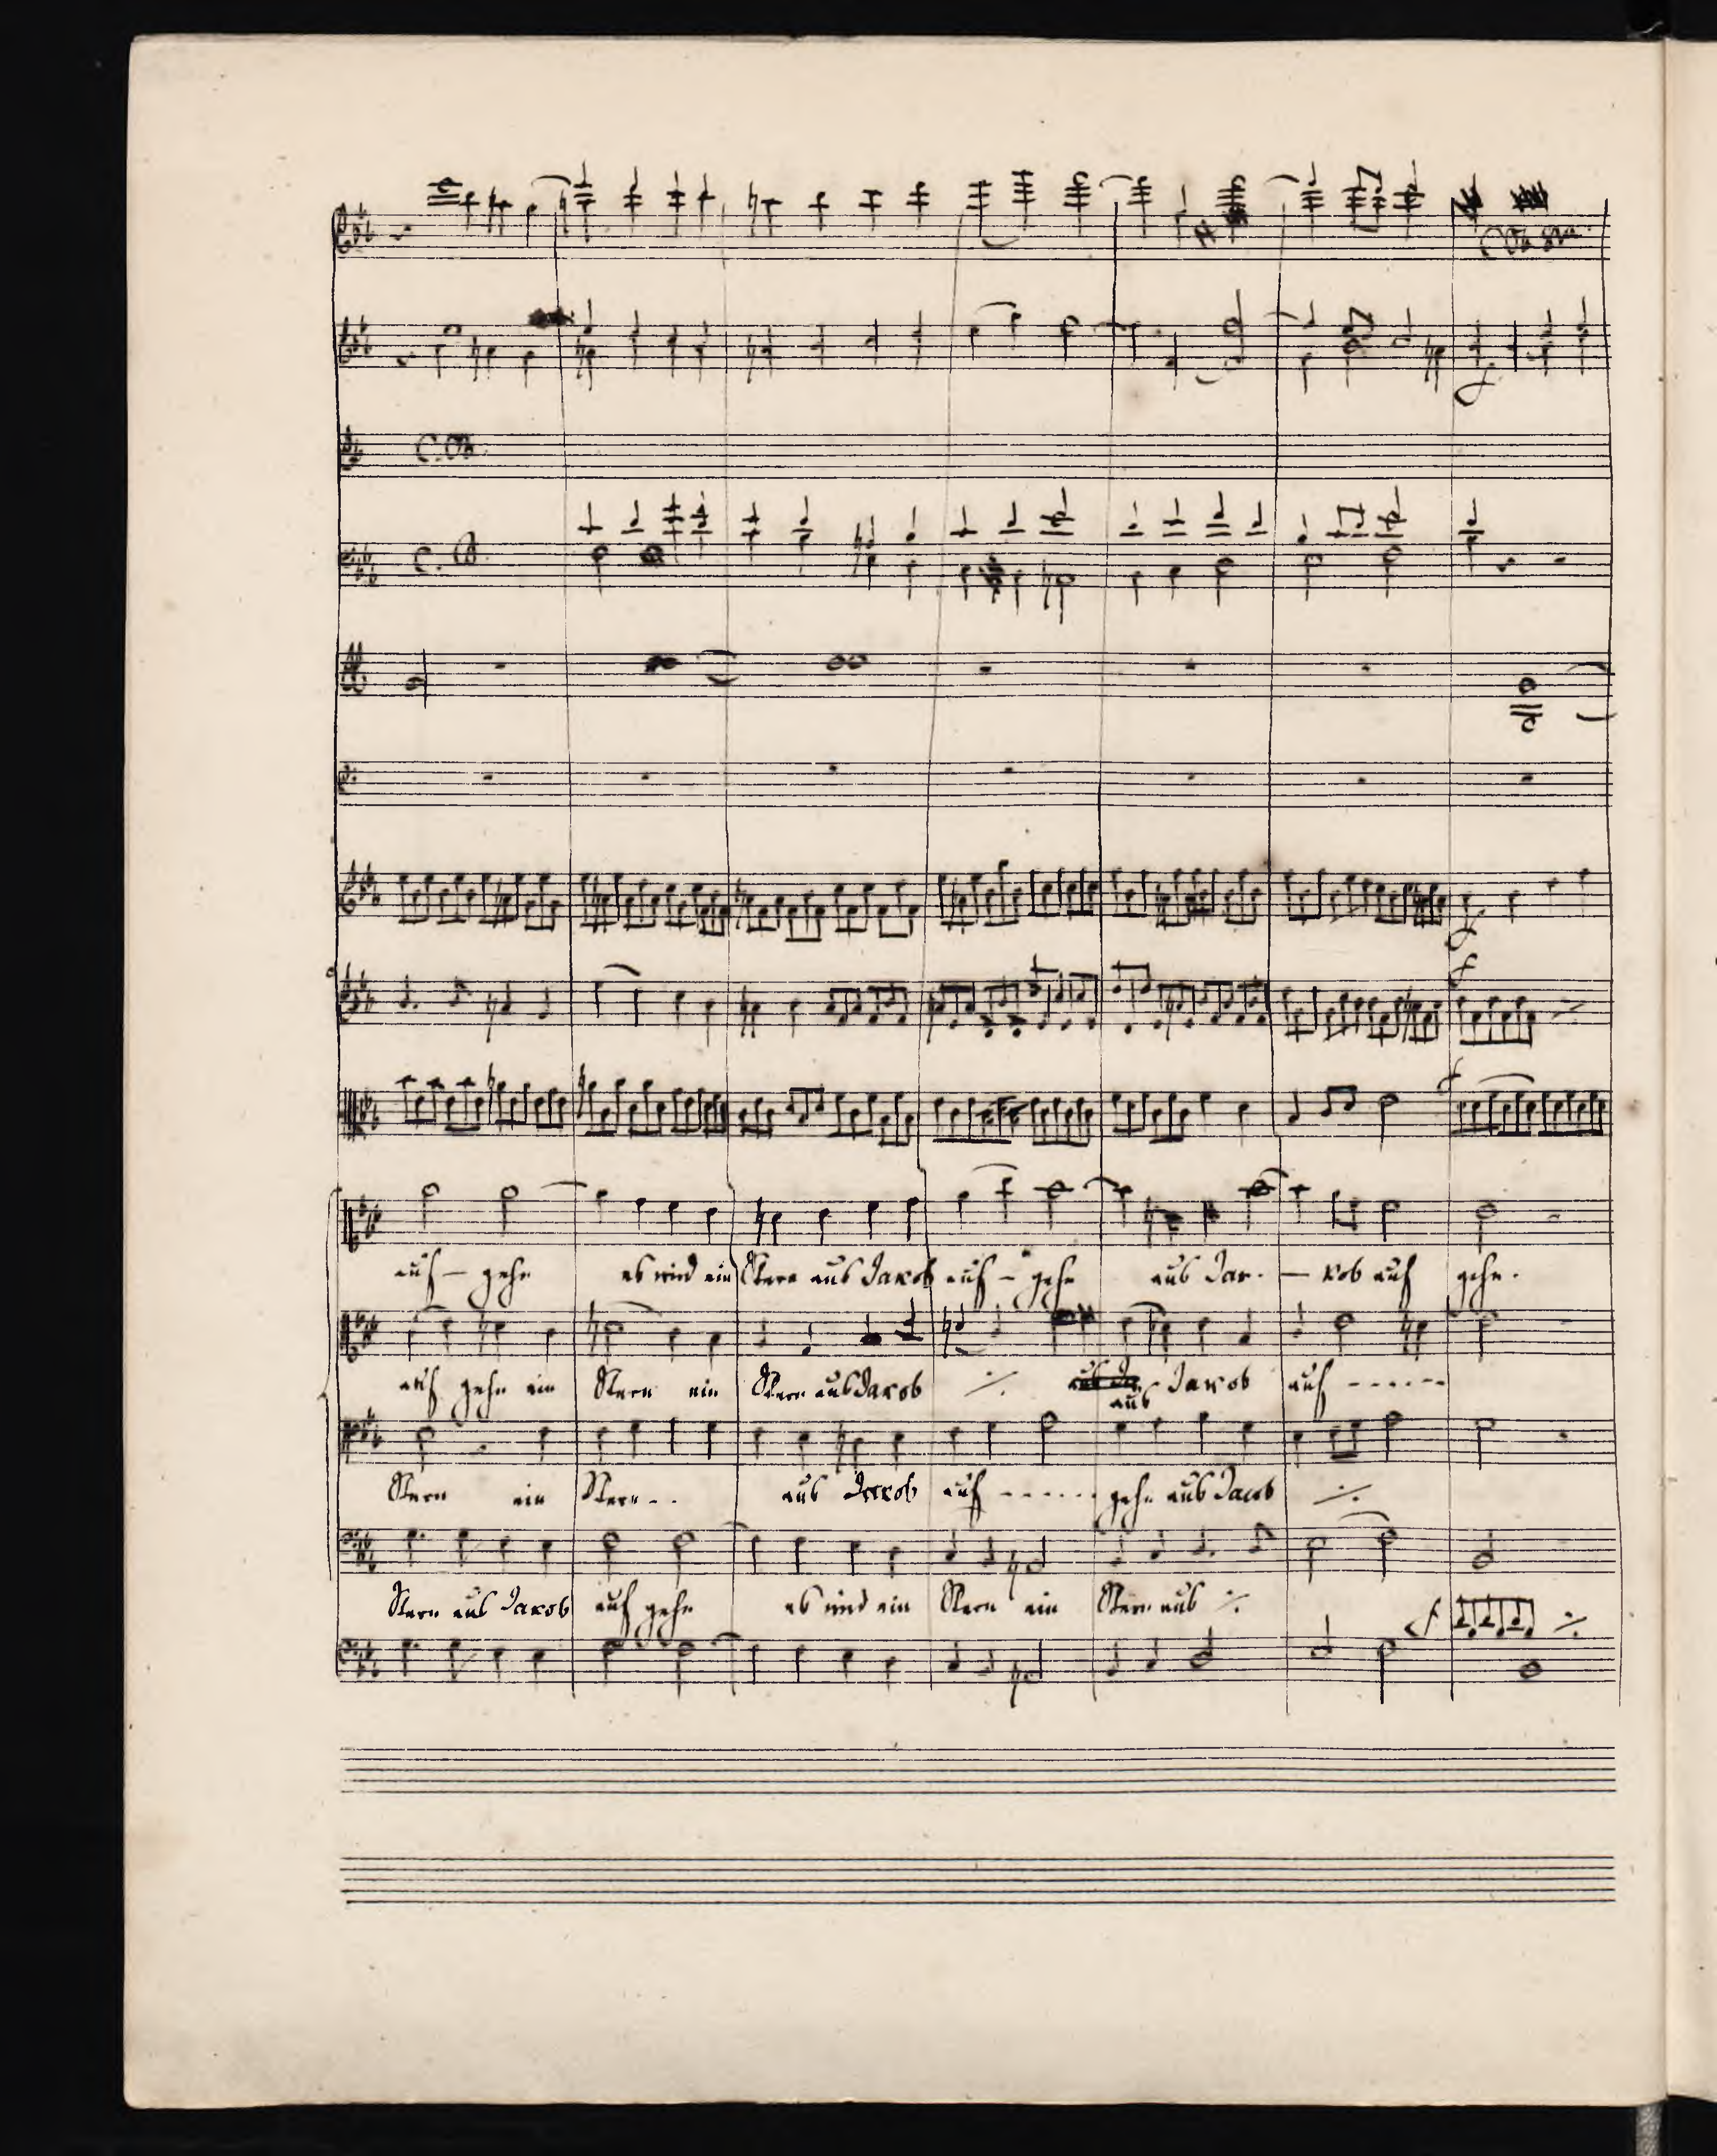 Col
C. B.
f
f
f
f
auf - gehn es wird ein Stern aus Jakob auf - gehn aus Ja - - kob auf gehn.
auf gehn ein Stern ein Stern aus Jakob ·/· aus Jakob auf - - - - - -
aus
Stern ein Stern - - aus Jakob auf - - - - - - gehn aus Jacob ·/·
Stern aus Jakob auf gehn es wird ein Stern ein Stern aus ·/·
f ·/·